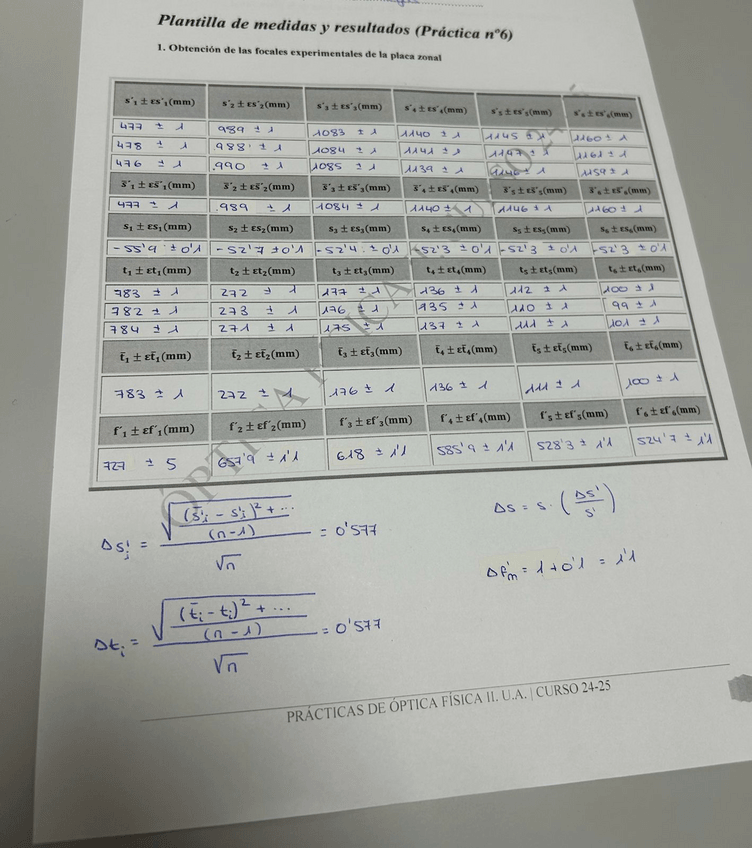 Plantilla de medidas y resultados (Práctica nº6)
1. Obtención de las focales experimentales de la placa zonal
s'₁ ± εs'₁(mm) s'₂ ± εs'₂(mm) s'₃ ± εs'₃(mm) s'₄ ± εs'₄(mm) s'₅ ± εs'₅(mm) s'₆ ± εs'₆(mm)
477 ± 1 989 ± 1 1083 ± 1 1140 ± 1 1145 ± 1 1160 ± 1
478 ± 1 988 ± 1 1084 ± 1 1141 ± 1 1147 ± 1 1161 ± 1
476 ± 1 990 ± 1 1085 ± 1 1139 ± 1 1146 ± 1 1159 ± 1
s̅'₁ ± εs̅'₁(mm) s̅'₂ ± εs̅'₂(mm) s̅'₃ ± εs̅'₃(mm) s̅'₄ ± εs̅'₄(mm) s̅'₅ ± εs̅'₅(mm) s̅'₆ ± εs̅'₆(mm)
477 ± 1 989 ± 1 1084 ± 1 1140 ± 1 1146 ± 1 1160 ± 1
s₁ ± εs₁(mm) s₂ ± εs₂(mm) s₃ ± εs₃(mm) s₄ ± εs₄(mm) s₅ ± εs₅(mm) s₆ ± εs₆(mm)
-55'9 ± 0'1 -52'7 ± 0'1 -52'4 ± 0'1 -52'3 ± 0'1 -52'3 ± 0'1 -52'3 ± 0'1
t₁ ± εt₁(mm) t₂ ± εt₂(mm) t₃ ± εt₃(mm) t₄ ± εt₄(mm) t₅ ± εt₅(mm) t₆ ± εt₆(mm)
783 ± 1 272 ± 1 177 ± 1 136 ± 1 112 ± 1 100 ± 1
782 ± 1 273 ± 1 176 ± 1 135 ± 1 110 ± 1 99 ± 1
784 ± 1 271 ± 1 175 ± 1 137 ± 1 111 ± 1 101 ± 1
t̅₁ ± εt̅₁(mm) t̅₂ ± εt̅₂(mm) t̅₃ ± εt̅₃(mm) t̅₄ ± εt̅₄(mm) t̅₅ ± εt̅₅(mm) t̅₆ ± εt̅₆(mm)
783 ± 1 272 ± 1 176 ± 1 136 ± 1 111 ± 1 100 ± 1
f'₁ ± εf'₁(mm) f'₂ ± εf'₂(mm) f'₃ ± εf'₃(mm) f'₄ ± εf'₄(mm) f'₅ ± εf'₅(mm) f'₆ ± εf'₆(mm)
727 ± 5 657'9 ± 1'1 618 ± 1'1 585'9 ± 1'1 528'3 ± 1'1 524'7 ± 1'1
Δs'ᵢ = √((s̅'ᵢ - s'ᵢ)² + ... / (n-1)) / √n = 0'577
Δs = s · (Δs' / s')
Δf'ₘ = 1 + 0'1 = 1'1
Δtᵢ = √((t̅ᵢ - tᵢ)² + ... / (n-1)) / √n = 0'577
PRÁCTICAS DE ÓPTICA FÍSICA II. U.A. | CURSO 24-25